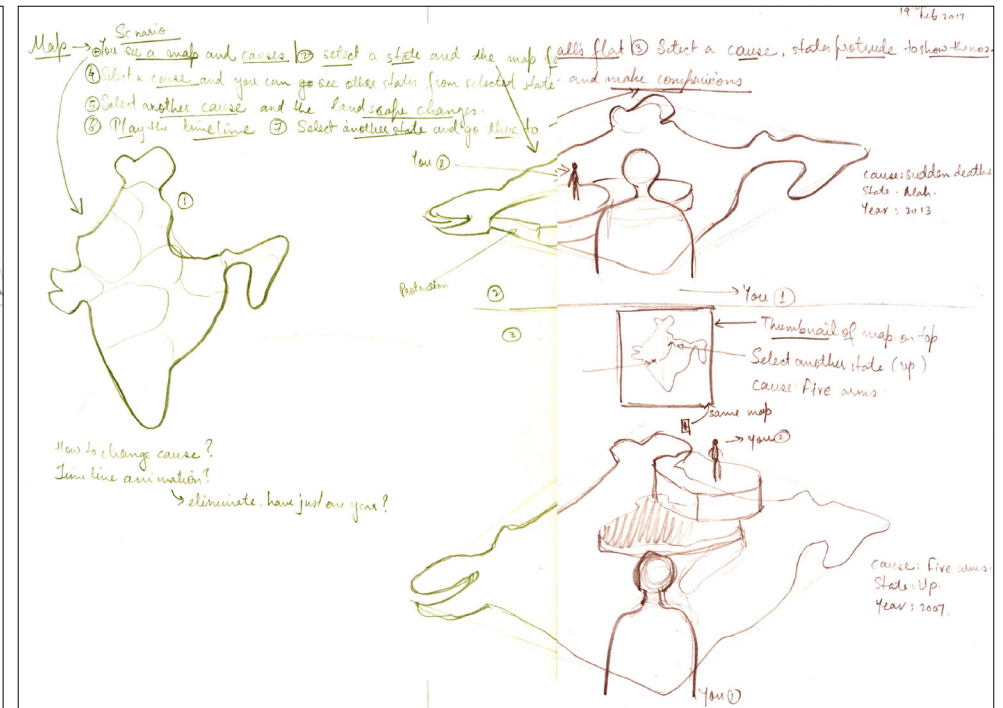 19th Feb 2017
Scnario
Map → ① You see a map and causes ② select a state and the map falls flat ③ Select a cause, states protrude to show the nos.
④ Select a cause and you can go see other states from selected state and make comparisions
⑤ Select another cause and the landscape changes.
⑥ Play the timeline ⑦ Select another state and go there to
①
You ②
cause: Sudden deaths
State: Mah.
Year: 2013
Protrusion
②
You ①
③
Thumbnail of map on top
Select another state (up)
cause: Fire arms.
same map
You ②
How to change cause?
Timeline animation?
eliminate. have just one year?
cause: Fire arms.
State: Up.
Year: 2007.
You ①